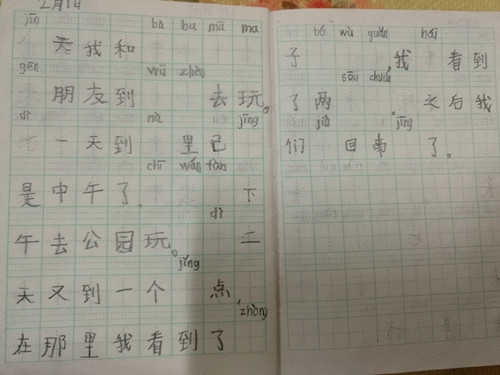 2月1日
jīn bà ba mā ma
天我和
gēn wǔ zhèn
朋友到 去玩。
dì nà jīng
一天到 里已
chī wán fàn
是中午了。 下
dì
午去公园玩。 二
jǐng
天又到一个 点,
zhòng
在那里我看到了
bó wù guǎn hái
子 ,我 看到
sōu chuán
了两 。之后我
jiù jīng
们 回南 了。